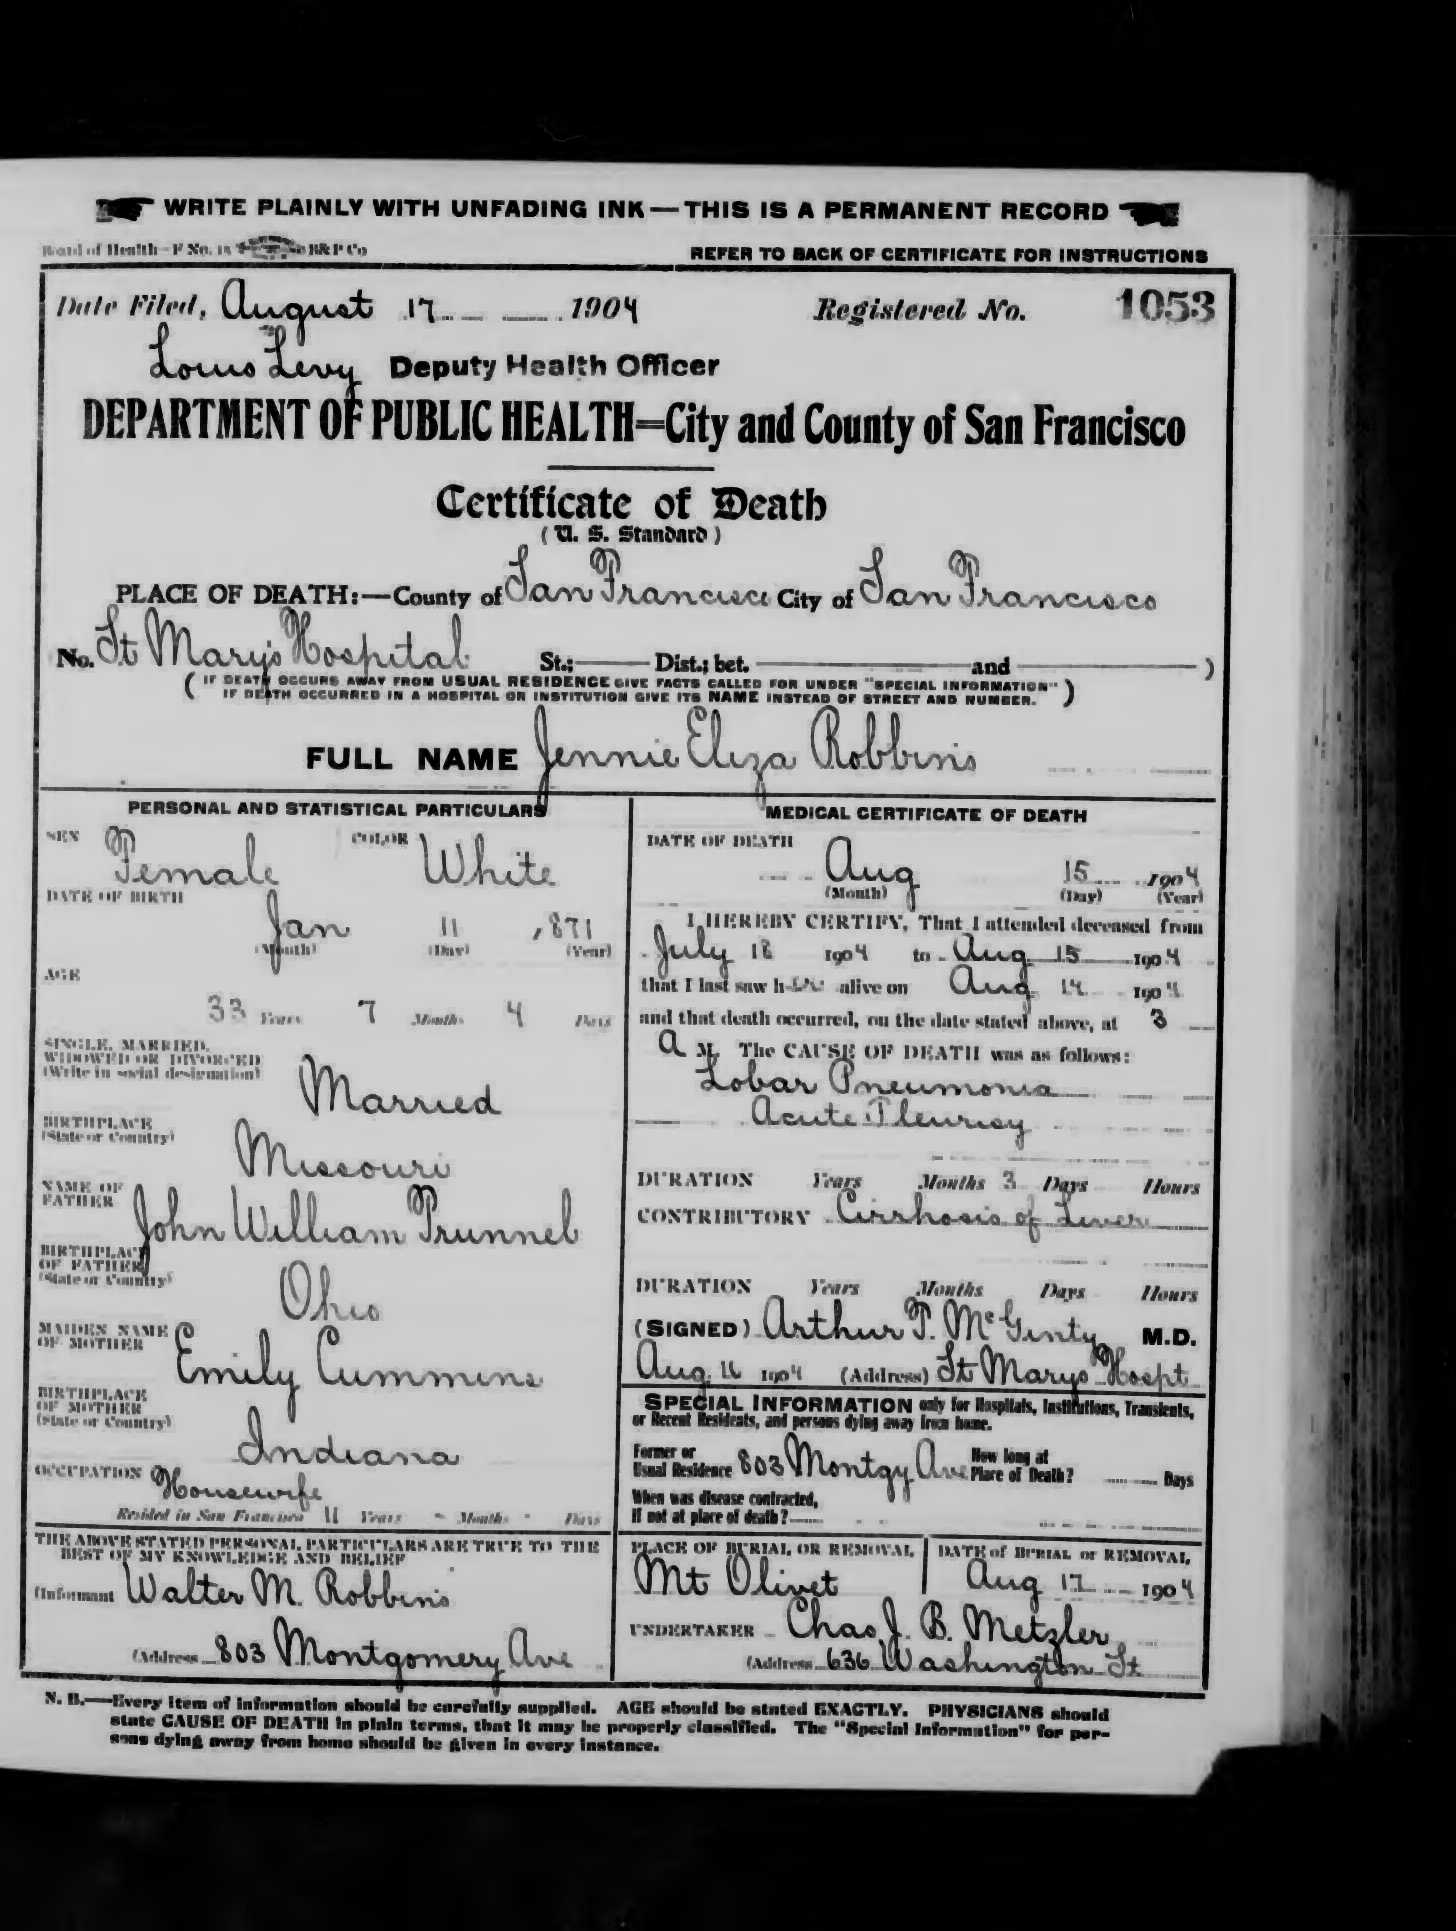 WRITE PLAINLY WITH UNFADING INK—THIS IS A PERMANENT RECORD
Board of Health—F No. 15 B&P Co REFER TO BACK OF CERTIFICATE FOR INSTRUCTIONS
Date Filed, August 17 1904 Registered No. 1053
Louis Levy Deputy Health Officer
DEPARTMENT OF PUBLIC HEALTH=City and County of San Francisco
Certificate of Death
(U. S. Standard)
PLACE OF DEATH:—County of San Francisco City of San Francisco
No. St Mary's Hospital St.; Dist.; bet. and )
(IF DEATH OCCURS AWAY FROM USUAL RESIDENCE GIVE FACTS CALLED FOR UNDER "SPECIAL INFORMATION"
IF DEATH OCCURRED IN A HOSPITAL OR INSTITUTION GIVE ITS NAME INSTEAD OF STREET AND NUMBER.)
FULL NAME Jennie Eliza Robbins
PERSONAL AND STATISTICAL PARTICULARS
SEX Female COLOR White
DATE OF BIRTH
Jan 11 1871
(Month) (Day) (Year)
AGE
33 Years 7 Months 4 Days
SINGLE, MARRIED,
WIDOWED OR DIVORCED
(Write in social designation)
Married
BIRTHPLACE
(State or Country)
Missouri
NAME OF
FATHER
John William Prunnel
BIRTHPLACE
OF FATHER
(State or Country)
Ohio
MAIDEN NAME
OF MOTHER
Emily Cummins
BIRTHPLACE
OF MOTHER
(State or Country)
Indiana
OCCUPATION Housewife
Resided in San Francisco 11 Years - Months - Days
THE ABOVE STATED PERSONAL PARTICULARS ARE TRUE TO THE
BEST OF MY KNOWLEDGE AND BELIEF
(Informant Walter M. Robbins
(Address 803 Montgomery Ave
MEDICAL CERTIFICATE OF DEATH
DATE OF DEATH
Aug 15 1904
(Month) (Day) (Year)
I HEREBY CERTIFY, That I attended deceased from
July 18 1904 to Aug 15 1904
that I last saw her alive on Aug 14 1904
and that death occurred, on the date stated above, at 3
a M. The CAUSE OF DEATH was as follows:
Lobar Pneumonia
Acute Pleurisy
DURATION Years Months 3 Days Hours
CONTRIBUTORY Cirrhosis of Liver
DURATION Years Months Days Hours
(SIGNED) Arthur P. McGinty M.D.
Aug 16 1904 (Address) St Marys Hospt
SPECIAL INFORMATION only for Hospitals, Institutions, Transients,
or Recent Residents, and persons dying away from home.
Former or
Usual Residence 803 Montgy Ave
How long at
Place of Death? Days
When was disease contracted,
If not at place of death?
PLACE OF BURIAL OR REMOVAL
Mt Olivet
DATE of BURIAL or REMOVAL
Aug 17 1904
UNDERTAKER Chas J. B. Metzler
(Address 636 Washington St
N. B.—Every item of information should be carefully supplied. AGE should be stated EXACTLY. PHYSICIANS should
state CAUSE OF DEATH in plain terms, that it may be properly classified. The "Special Information" for per-
sons dying away from home should be given in every instance.